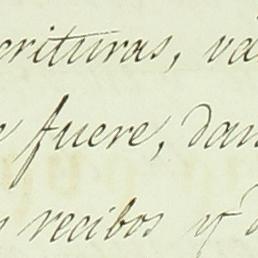 crituras, va
e fuere, dan
s recibos y d